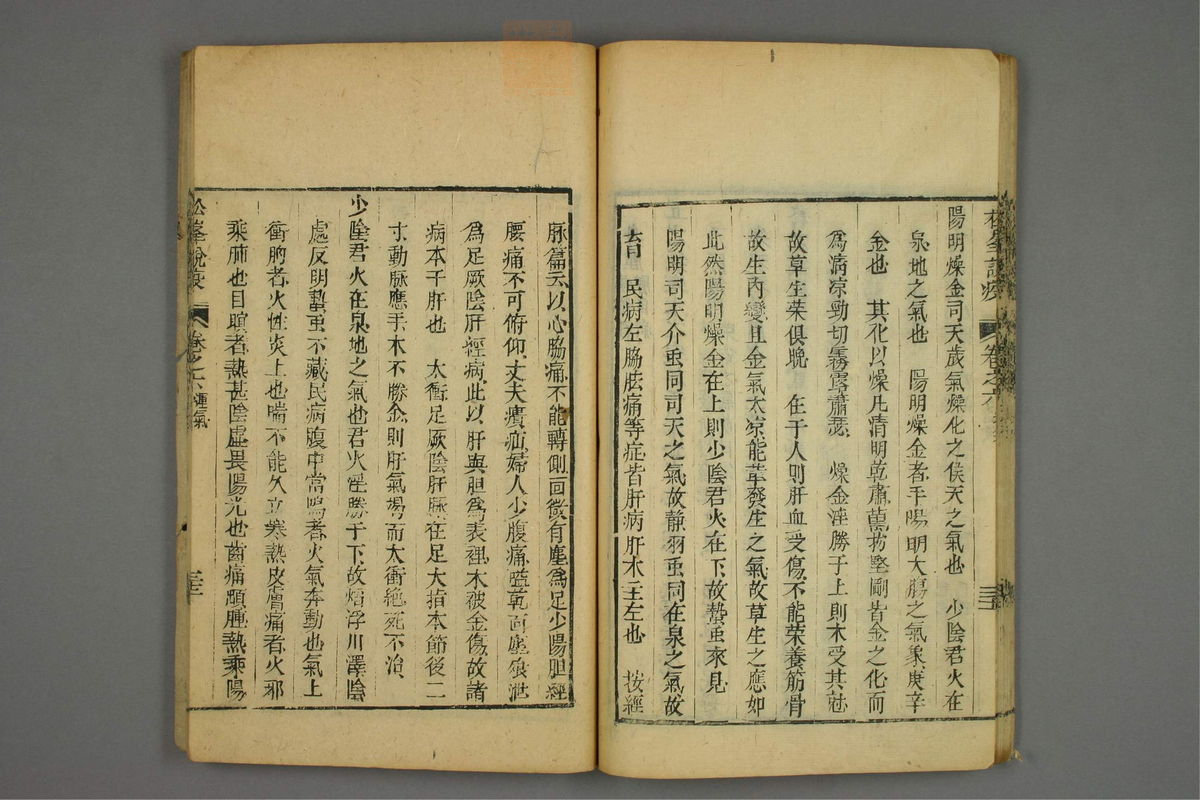 松峯說疫 卷之六
陽明燥金司天歲氣燥化之候天之氣也 少陰君火在
泉地之氣也 陽明燥金者手陽明大腸之氣象庚辛
金也 其化以燥凡清明乾肅萬物堅剛皆金之化而
為清凉勁切霧露蕭瑟 燥金淫勝于上則木受其尅
故草生榮俱晚 在于人則肝血受傷不能榮養筋骨
故生內變且金氣太凉能革發生之氣故草生之應如
此然陽明燥金在上則少陰君火在下故蟄虫來見
陽明司天介虫同司天之氣故靜羽虫同在泉之氣故
育 民病左脇胠痛等症皆肝病肝木主左也 按經
脉篇云以心脇痛不能轉側面微有塵為足少陽胆經
腰痛不可俯仰丈夫㿉疝婦人少腹痛嗌乾面塵飱泄
為足厥陰肝經病此以肝與胆為表裡木被金傷故諸
病本于肝也 太衝足厥陰肝脉在足大指本節後二
寸動脉應手木不勝金則肝氣竭而太衝絶死不治
少陰君火在泉地之氣也君火淫勝于下故熖浮川澤陰
處反明蟄虫不藏民病腹中常鳴者火氣奔動也氣上
衝胸者火性炎上也喘不能久立寒熱皮膚痛者火邪
乘肺也目瞑者熱甚陰虛畏陽光也齒痛䪼腫熱乘陽
松峯說疫 卷之六 運氣 三十三